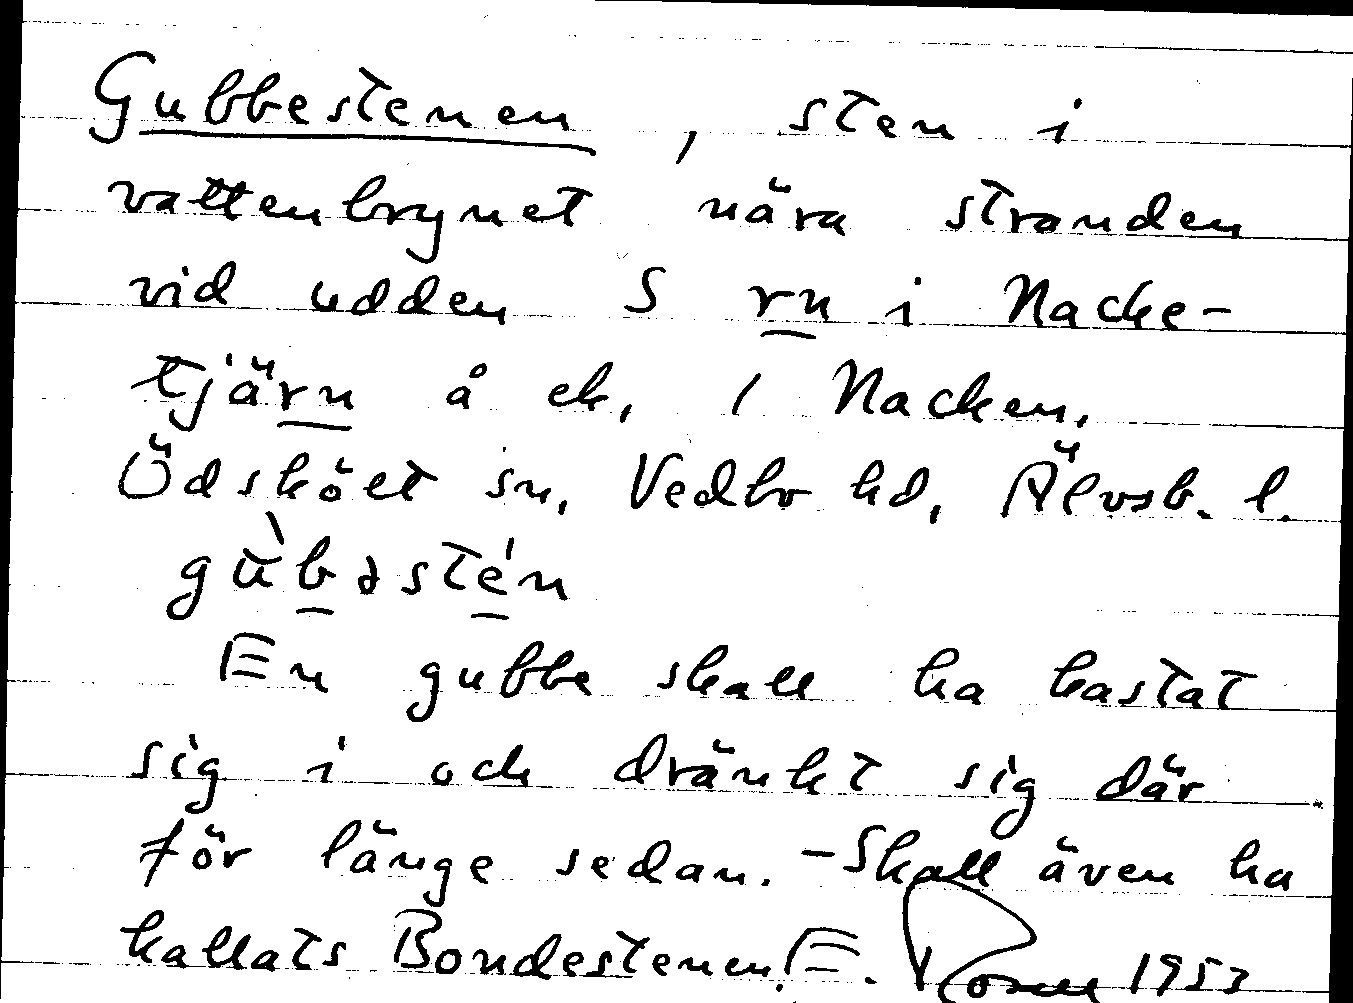 Gubbestenen, sten i
vattenbrynet nära stranden
vid udden S rn i Nacke-
tjärn å ek, i Nacken,
Ödsköłt sn, Vedbo hd, Älvsb. l.
gù̄bəsté̄n
En gubbe skall ha kastat
sig i och dränkt sig där
för länge sedan. - Skall även ha
kallats Bondestenen. E. 1953